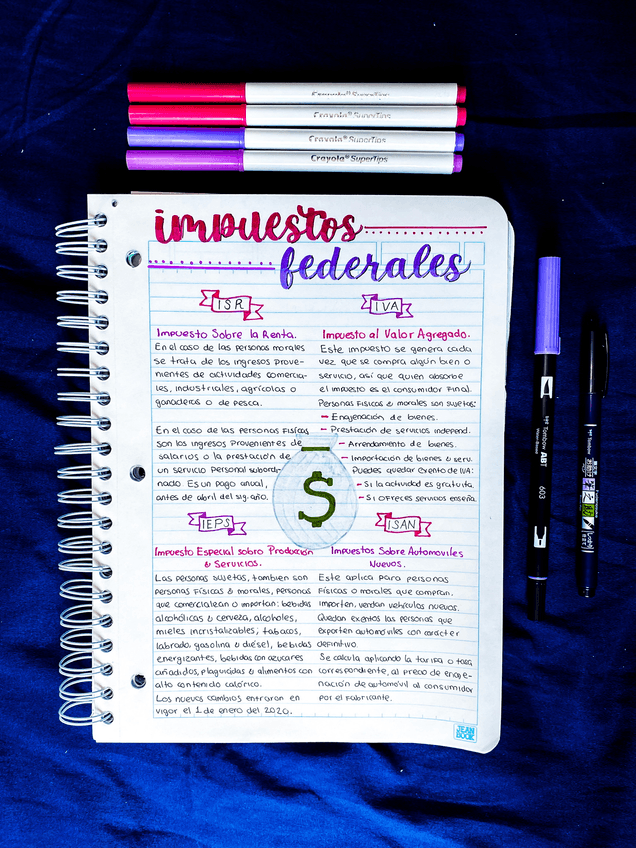 Crayola® SuperTips
Crayola® SuperTips
Crayola® SuperTips
Crayola® SuperTips
impuestos
federales
ISR
Impuesto Sobre la Renta.
En el caso de las personas morales
se trata de los ingresos prove-
nientes de actividades comercia-
les, industriales, agrícolas o
ganaderos o de pesca.
En el caso de las personas físicas
son los ingresos provenientes de
salarios o la prestación de
un servicio personal subordi-
nado. Es un pago anual,
antes de abril del sig. año.
IVA
Impuesto al Valor Agregado.
Este impuesto se genera cada
vez que se compra algún bien o
servicio, así que quien absorbe
el impuesto es el consumidor final.
Personas físicas & morales son sujetas:
- Enajenación de bienes.
- Prestación de servicios independ.
- Arrendamiento de bienes.
- Importación de bienes & serv.
Puedes quedar exento de IVA:
- Si la actividad es gratuita.
- Si ofreces servicios enseña.
$
IEPS
Impuesto Especial sobro Producción
& Servicios.
Las personas sujetas, tambien son
personas físicas & morales, personas
que comercialean o importan: bebidas
alcohólicas & cerveza, alcoholes,
mieles incristalizables, tabacos,
labrado, gasolina & diésel, bebidas
energizantes, bebidas con azucares
añadidos, plaguicidas & alimentos con
alto contenido calórico.
Los nuevos cambios entraron en
vigor el 1 de enero del 2020.
ISAN
Impuestos Sobre Automoviles
Nuevos.
Este aplica para personas
físicas o morales que compran,
importen, vendan vehículos nuevos.
Quedan exentos las personas que
exporten automóviles con carácter
definitivo.
Se calcula aplicando la tarifa o tasa
correspondiente, al precio de enaje-
nación de automóvil al consumidor
por el fabricante.
JEAN
BOOK
Tombow ABT
603
Tombow